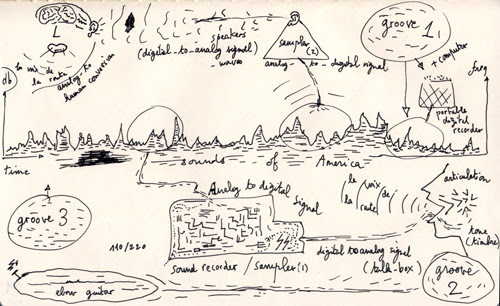 L
speakers
(digital-to-analog signal)
-waves
sampler
(2)
analog-to-digital signal
groove 1
+ computer
db
la voix de
la route
analog-to
human conversion
freq
portable
digital
recorder
time
sounds of America
groove 3
110/220
Analog to digital
signal
la voix de
la route
articulation
tone
(timbre)
sound recorder / sampler(1)
digital to analog signal
(talk-box)
groove
2
ebow guitar